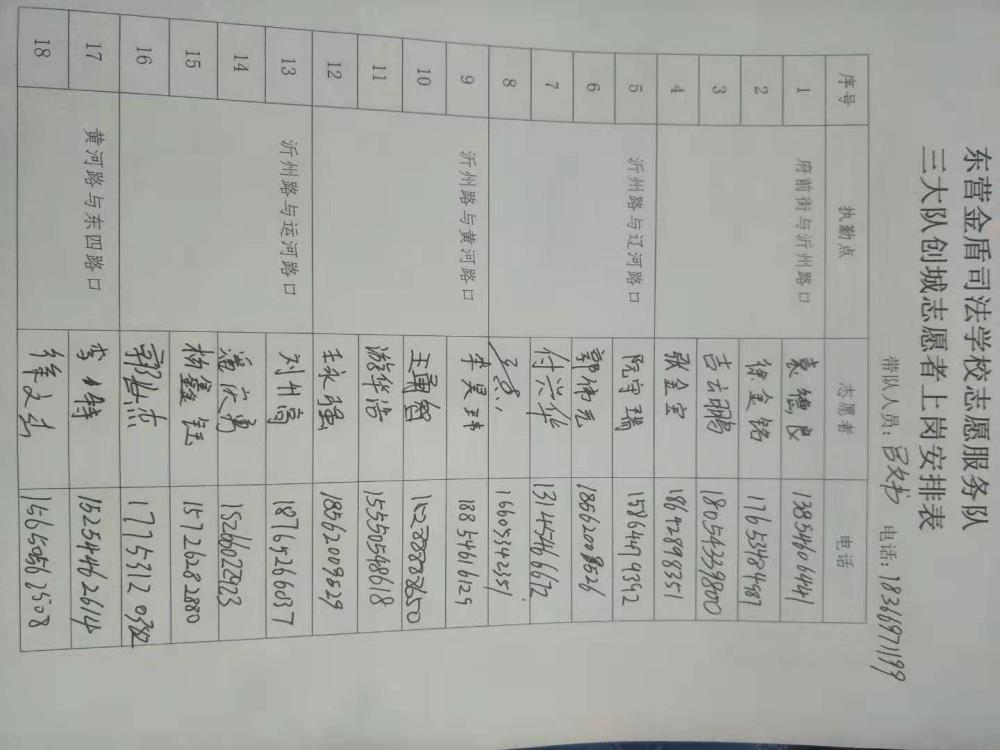 东营金盾司法学校志愿服务队
三大队创城志愿者上岗安排表
带队人员: 电话: 18366971199
序号 执勤点 志愿者 电话
1 府前街与沂州路口 袁德良 13854606441
2 徐金铭 17625484987
3 吉云鹏 18054339800
4 张金宝 18642898351
5 沂州路与辽河路口 阮守瑞 15864479392
6 郭伟元
7 付兴华 13145466672
8 16605342351
9 沂州路与黄河路口 李昊玮 18854616129
10 王勇智
11 游华浩 15550548618
12 王永强 18562009529
13 沂州路与运河路口 刘州高 18765926037
14
15 杨鑫钰 15726282880
16 郭兴杰
17 黄河路与东四路口 李特 15254462614
18 徐文杰